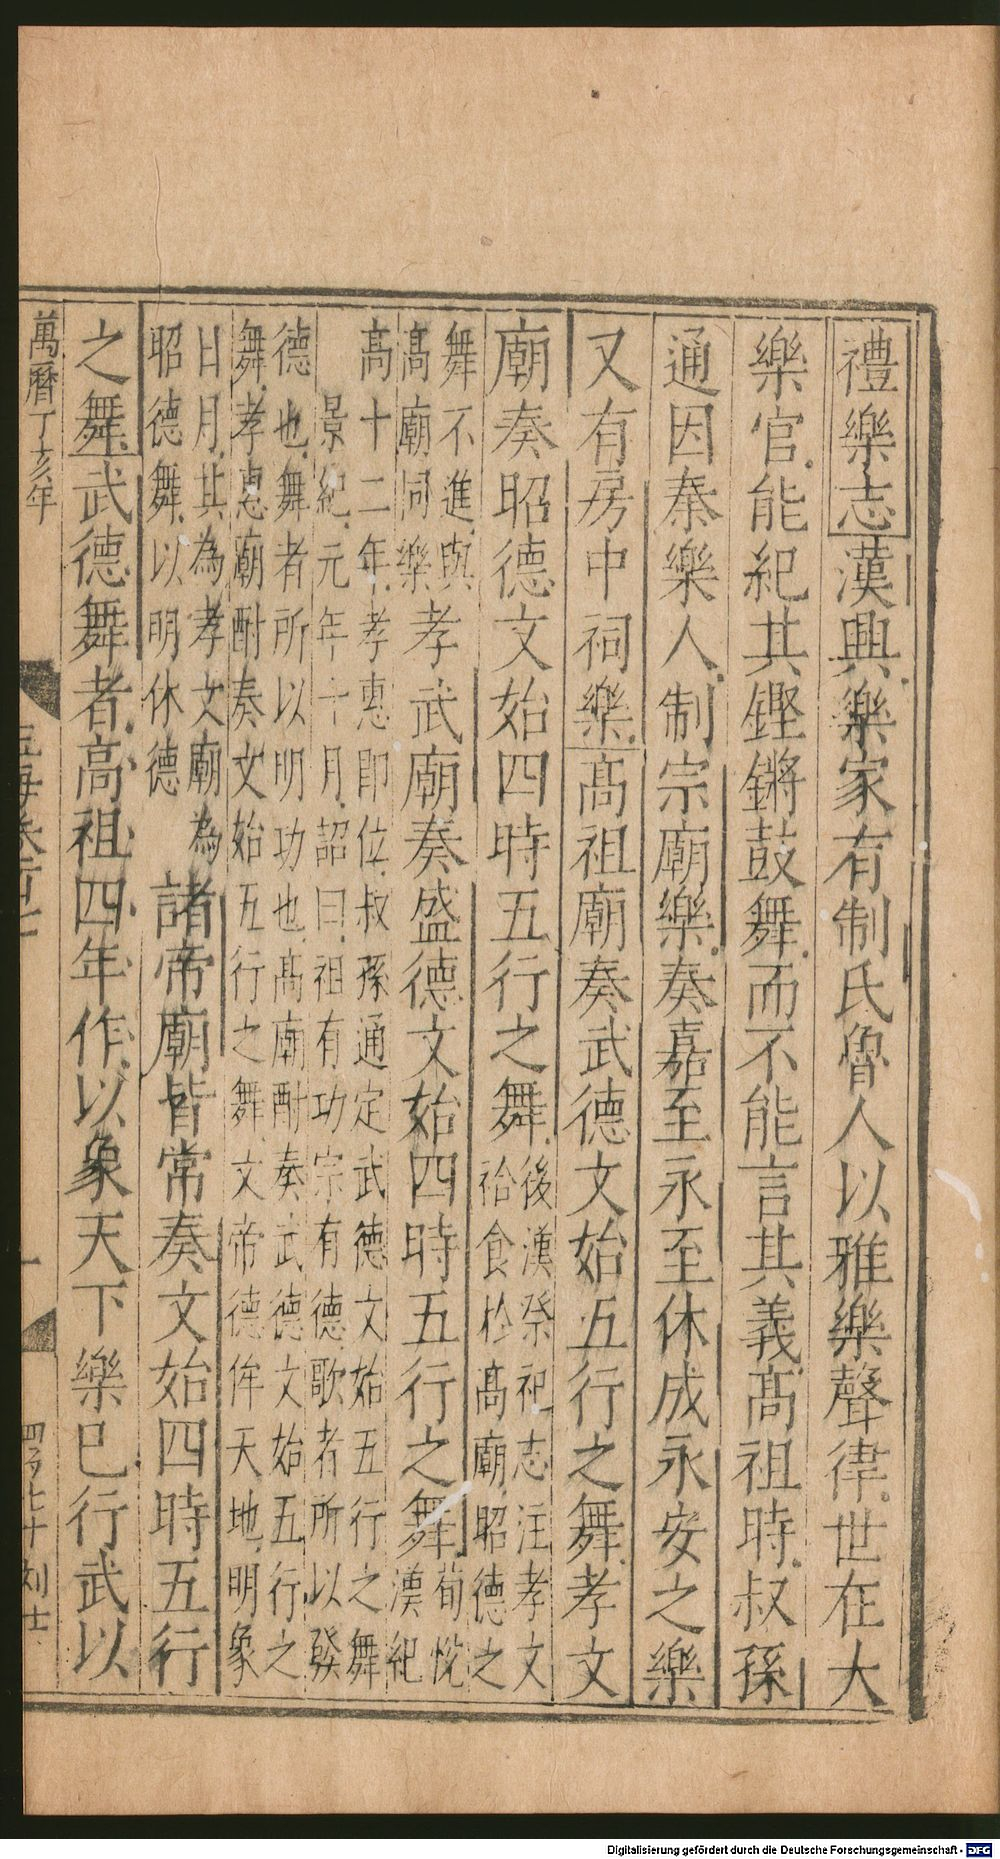 禮樂志漢興樂家有制氏魯人以雅樂聲律世在大
樂官能紀其鏗鏘鼓舞而不能言其義高祖時叔孫
通因秦樂人制宗廟樂奏嘉至永至休成永安之樂
又有房中祠樂高祖廟奏武德文始五行之舞孝文
廟奏昭德文始四時五行之舞
後漢祭祀志注孝文
祫食於高廟昭德之
舞不進與
高廟同樂
孝武廟奏盛德文始四時五行之舞
荀悅
漢紀
高十二年孝惠即位叔孫通定武德文始五行之舞
景紀元年十月詔曰祖有功宗有德歌者所以發
德也舞者所以明功也高廟酎奏武德文始五行之
舞孝惠廟酎奏文始五行之舞文帝德侔天地明象
日月其為孝文廟為
昭德舞以明休德
諸帝廟皆常奏文始四時五行
之舞武德舞者高祖四年作以象天下樂已行武以
萬曆丁亥年
玉海卷百七
一